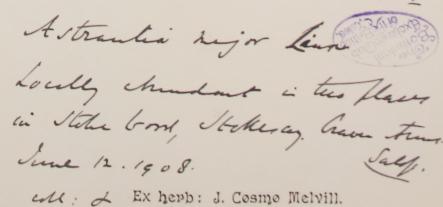 Astrantia major Linn
Locally abundant in two places
in Stoke Wood, Stokesay. Craven Arms.
June 12. 1908. Salop.
coll: & Ex herb: J. Cosmo Melvill.